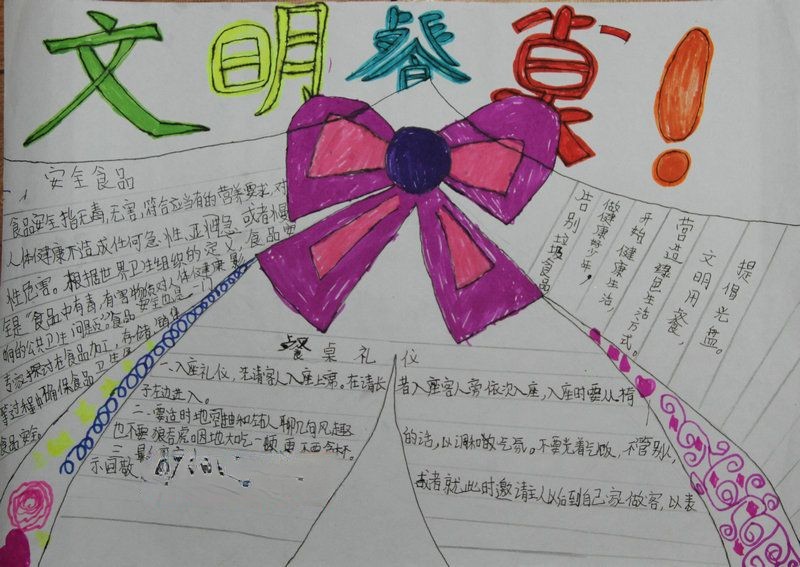 文明餐桌!
安全食品
食品安全指无毒、无害,符合应当有的营养要求,对
人体健康不造成任何急性、亚慢急或者慢
性危害。根据世界卫生组织的定义,食品安
全是“食品中有毒,有害物质对人体健康影
响的公共卫生问题。”食品安全也是一门
专家探讨在食品加工、存储、销售
等过程中确保食品卫生及
食品安全。
提倡光盘。
文明用餐,
营造绿色生活方式。
开始健康生活,
做健康好少年,
告别垃圾食品
餐桌礼仪
一、入座礼仪,先请客人入座上席。在请长者入座客人旁依次入座,入座时要从椅
子左边进入。
二、要适时地
也不要狼吞虎 因地大吃一顿
的话,以调和气氛。不要光着吃饭,不管别人,
或者就此时邀请主人以后到自己家做客,以表
示回敬